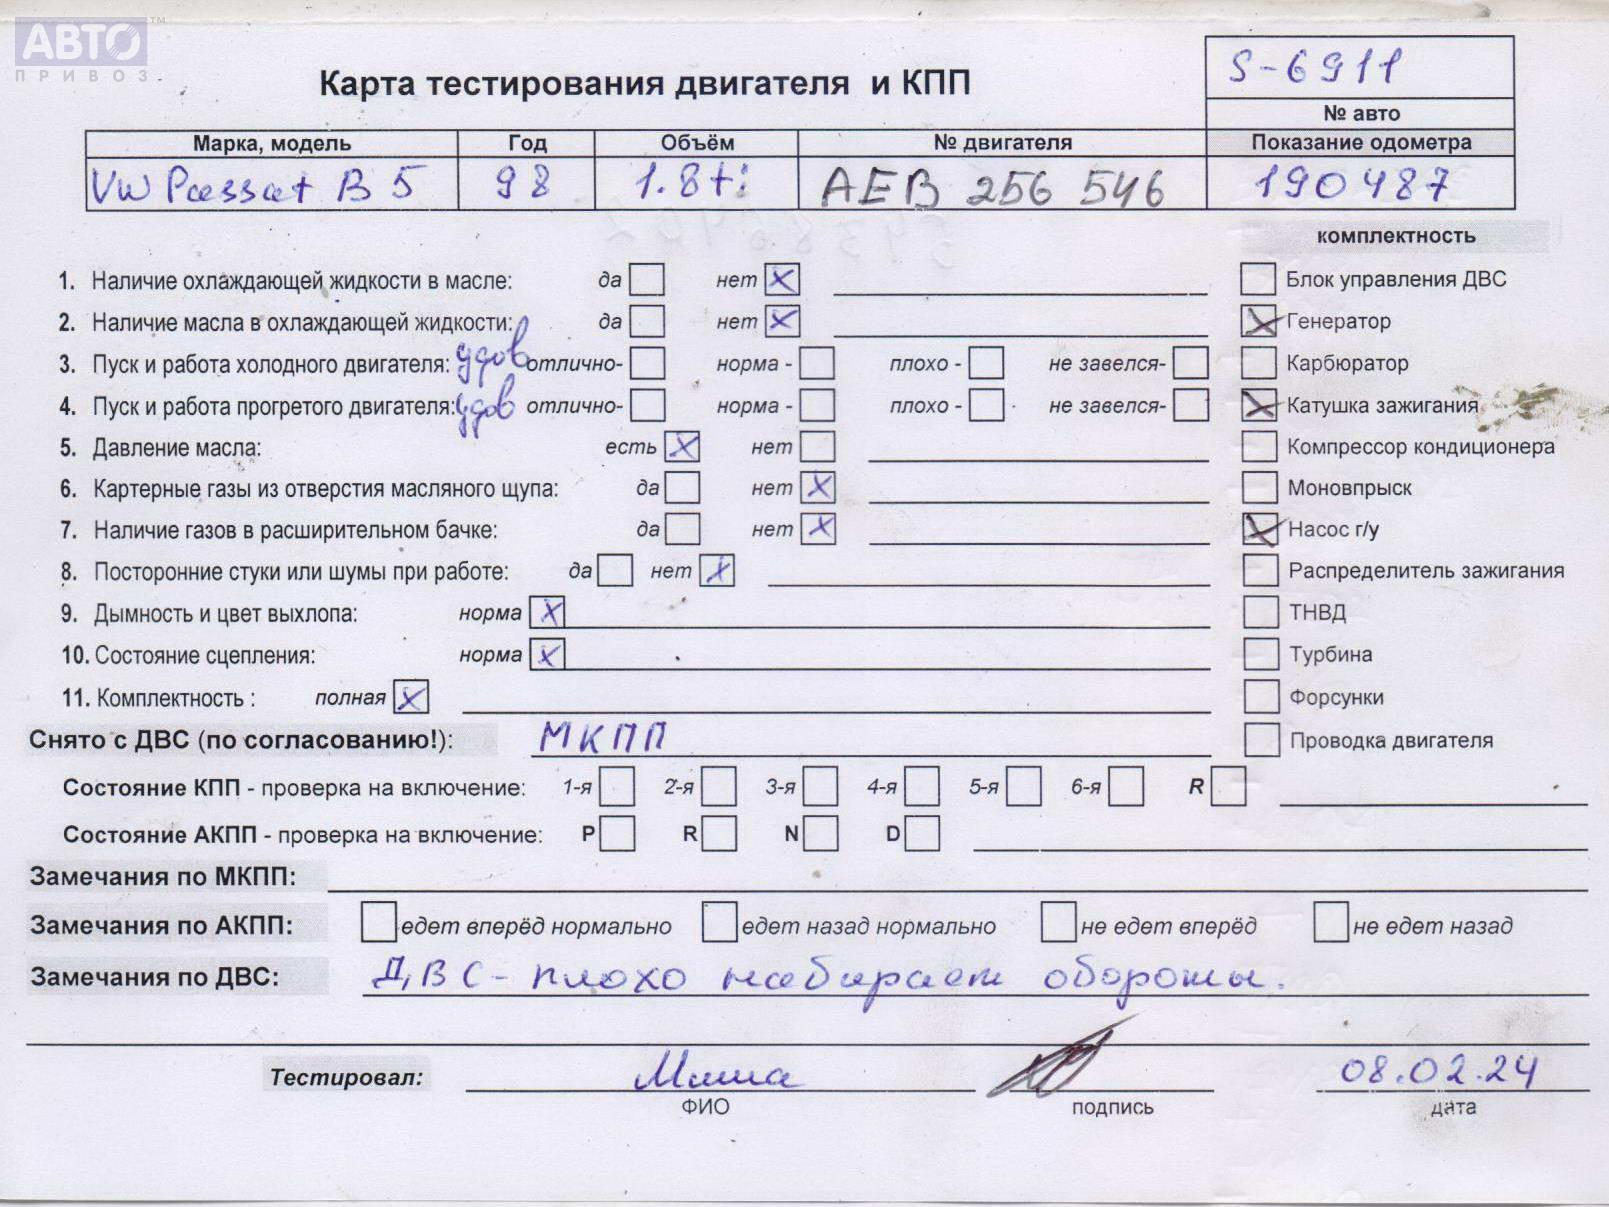 АВТО™
ПРИВОЗ
S-6911
Карта тестирования двигателя и КПП
№ авто
Марка, модель Год Объём № двигателя Показание одометра
VW Passat B5 98 1.8ti AEB 256 546 190487
комплектность
1. Наличие охлаждающей жидкости в масле: да нет X Блок управления ДВС
2. Наличие масла в охлаждающей жидкости: да нет X X Генератор
3. Пуск и работа холодного двигателя: удов отлично- норма - плохо - не завелся- Карбюратор
4. Пуск и работа прогретого двигателя: удов отлично- норма - плохо - не завелся- X Катушка зажигания
5. Давление масла: есть X нет Компрессор кондиционера
6. Картерные газы из отверстия масляного щупа: да нет X Моновпрыск
7. Наличие газов в расширительном бачке: да нет X X Насос г/у
8. Посторонние стуки или шумы при работе: да нет X Распределитель зажигания
9. Дымность и цвет выхлопа: норма X ТНВД
10. Состояние сцепления: норма X Турбина
11. Комплектность : полная X Форсунки
Снято с ДВС (по согласованию!): МКПП Проводка двигателя
Состояние КПП - проверка на включение: 1-я 2-я 3-я 4-я 5-я 6-я R
Состояние АКПП - проверка на включение: P R N D
Замечания по МКПП:
Замечания по АКПП: едет вперёд нормально едет назад нормально не едет вперёд не едет назад
Замечания по ДВС: ДВС - плохо набирает обороты.
Тестировал: Миша 08.02.24
ФИО подпись дата